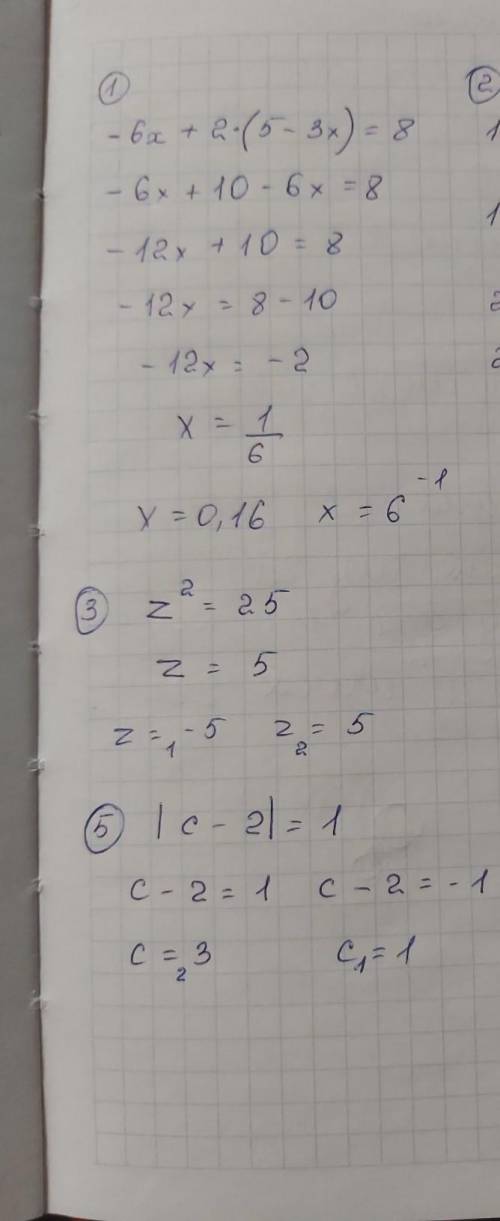 ①
②
-6x + 2·(5 - 3x) = 8
1
-6x + 10 - 6x = 8
1
-12x + 10 = 8
-12x = 8 - 10
2
-12x = -2
2
x = 1/6
x = 0,16 x = 6⁻¹
③ z² = 25
z = 5
z =₁ -5 z₂ = 5
⑤ |c - 2| = 1
c - 2 = 1 c - 2 = -1
c =₂ 3 c₁ = 1